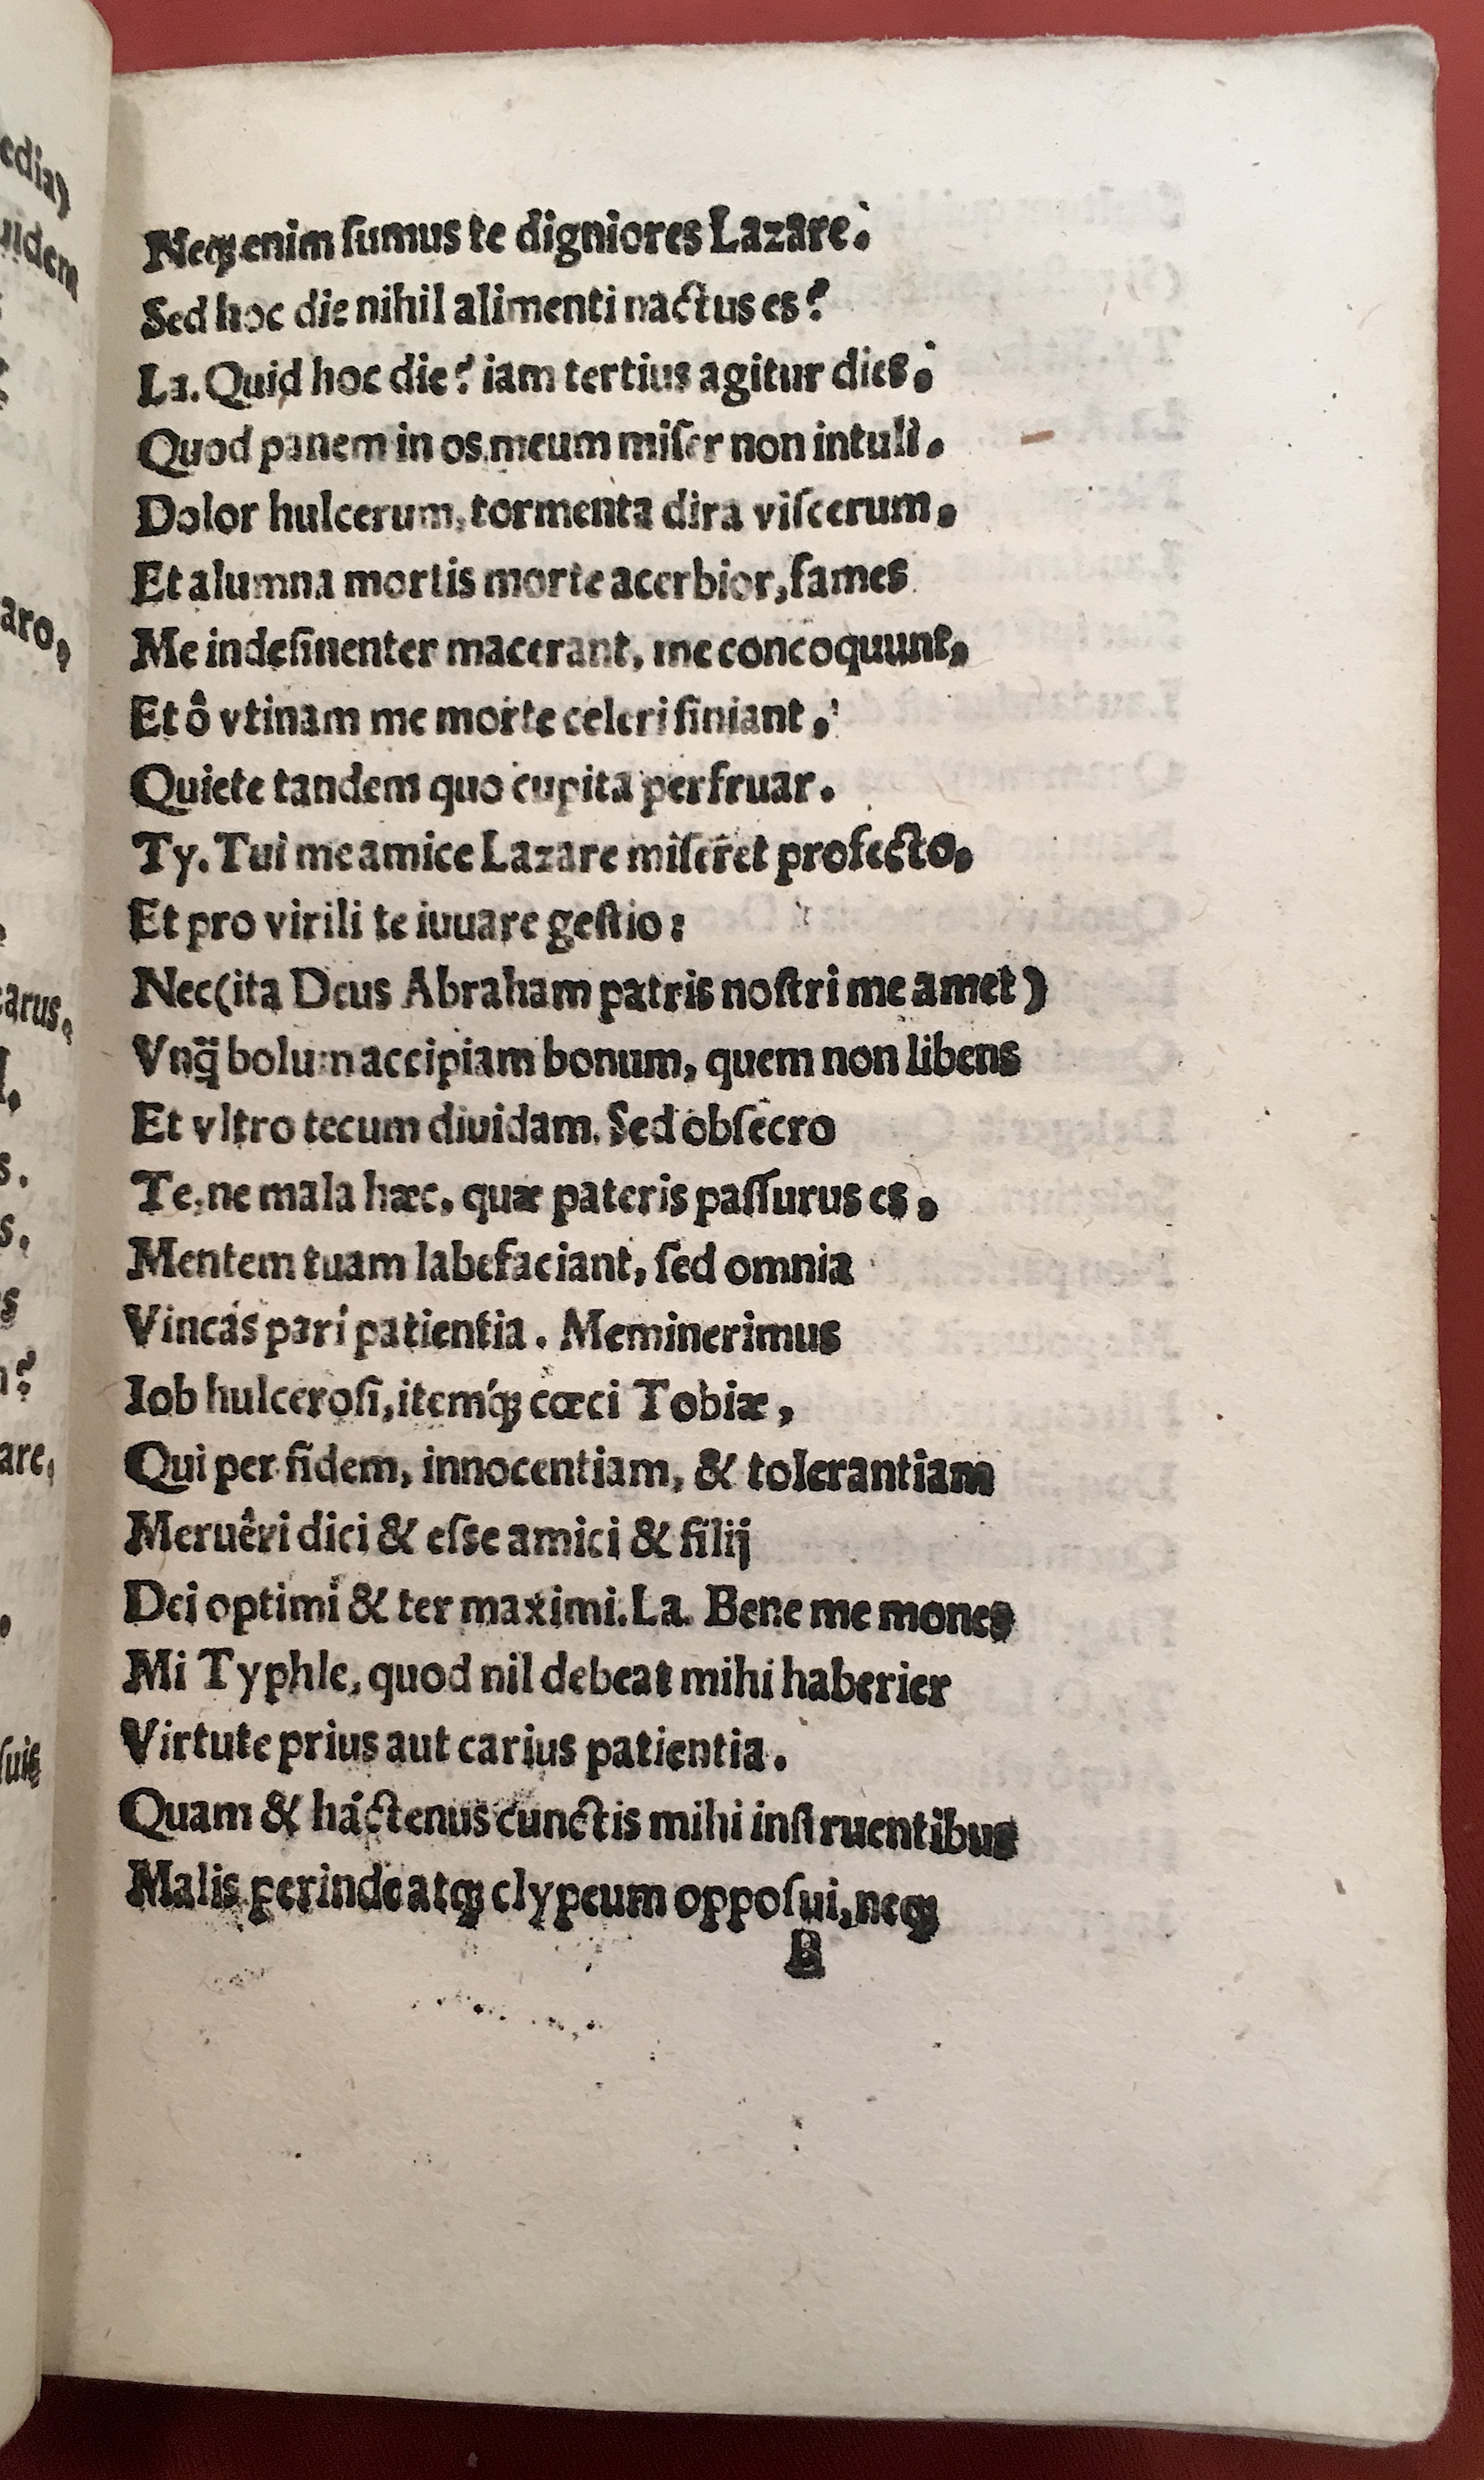 Neqꝫ enim ſumus te digniores Lazare.
Sed hoc die nihil alimenti nactus es?
La. Quid hoc die? iam tertius agitur dies.
Quod panem in os meum miſer non intuli.
Dolor hulcerum, tormenta dira viſcerum,
Et alumna mortis morte acerbior, fames
Me indeſinenter macerant, me concoquunt,
Et ô vtinam me morte celeri finiant,
Quiete tandem quo cupita perfruar.
Ty. Tui me amice Lazare miſeret profecto,
Et pro virili te iuuare geſtio:
Nec (ita Deus Abraham patris noſtri me amet)
Vnq̈ bolum accipiam bonum, quem non libens
Et vltro tecum diuidam. Sed obſecro
Te, ne mala hæc, quæ pateris paſſurus es,
Mentem tuam labefaciant, ſed omnia
Vincas pari patientia. Meminerimus
Iob hulceroſi, itemq́ꝫ cœci Tobiæ,
Qui per fidem, innocentiam, & tolerantiam
Meruêri dici & eſse amici & filij
Dei optimi & ter maximi. La. Bene me mones
Mi Typhle, quod nil debeat mihi haberier
Virtute prius aut carius patientia.
Quam & háctenus cunctis mihi inſtruentibus
Malis perinde atqꝫ clypeum oppoſui, neqꝫ
B
edia)
uidem
aro,
carus,
s.
s,
s
n?
are,
ſuis